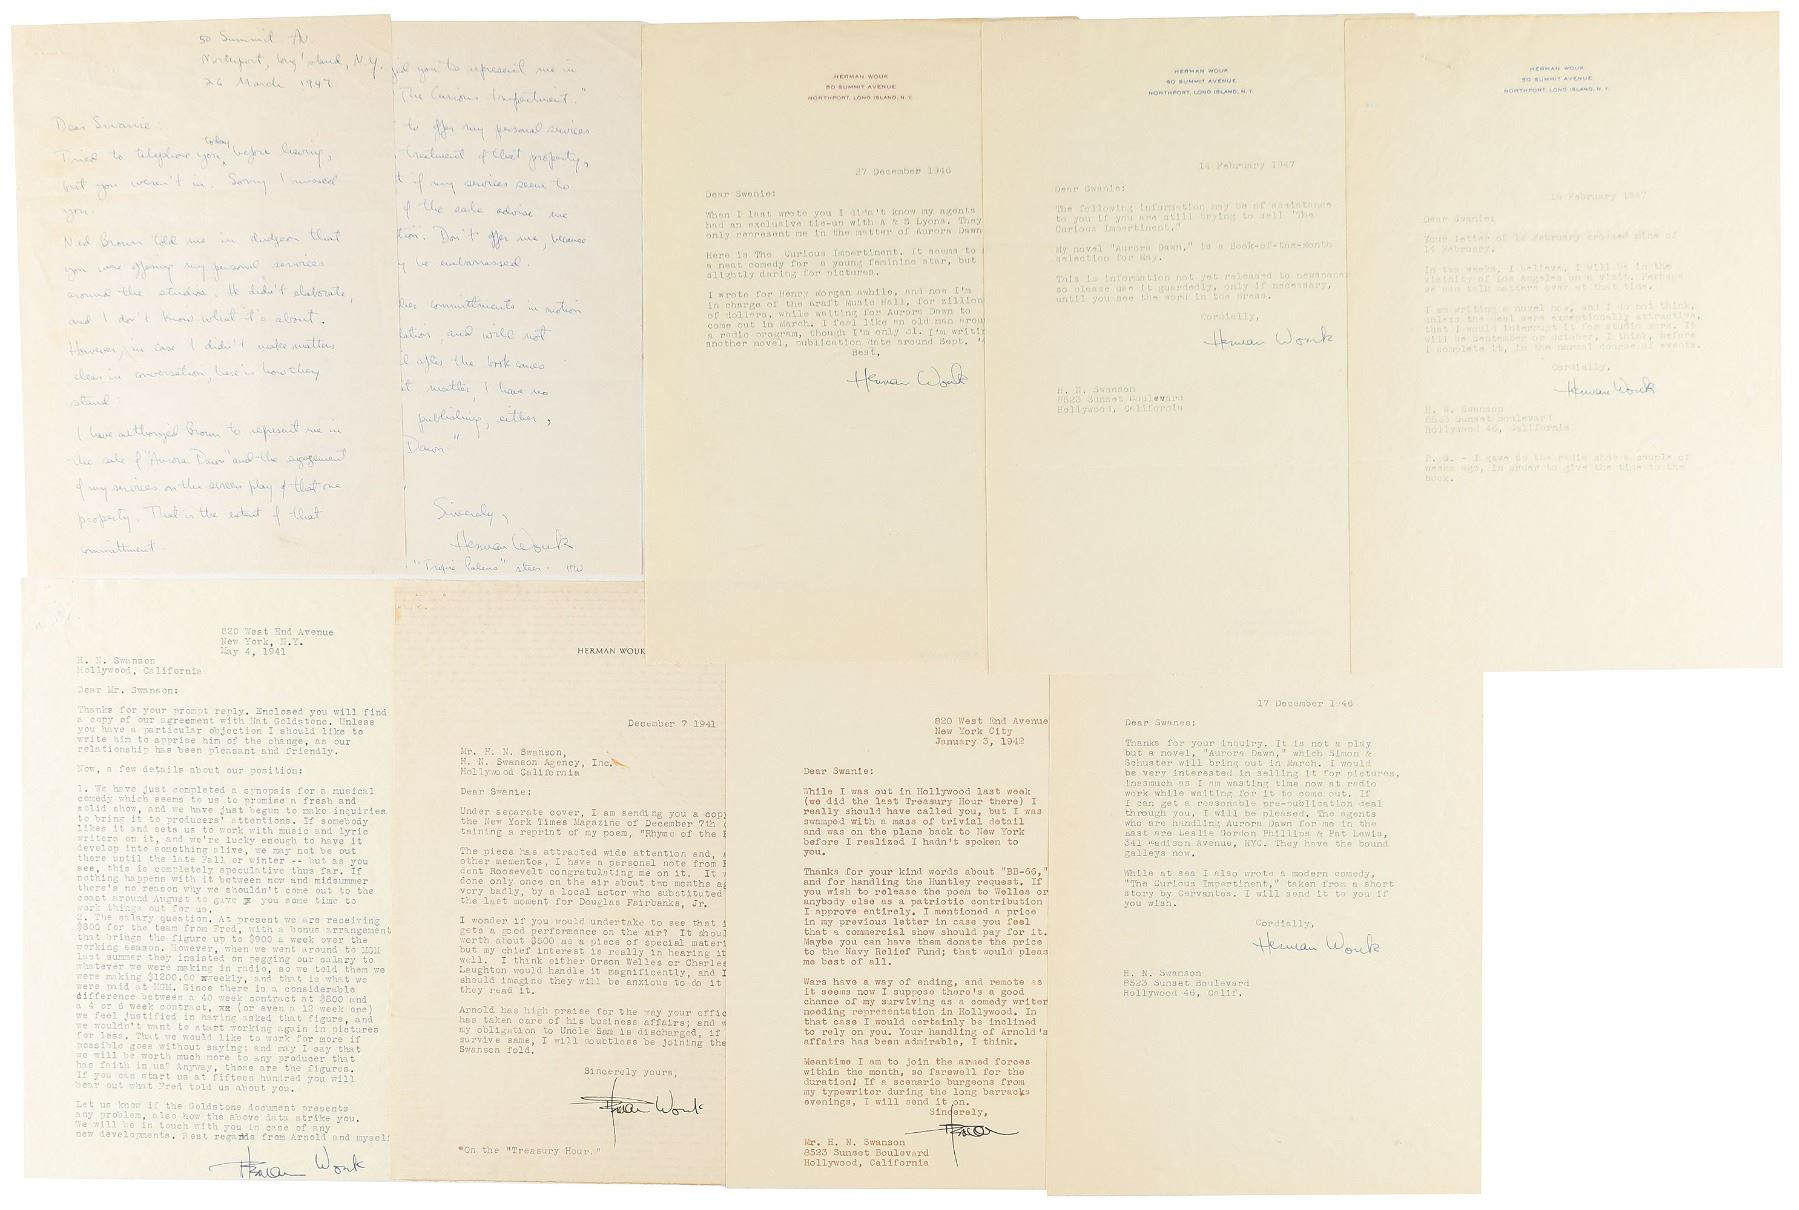 50 Summit Av
Northport, Long Island, N.Y.
26 March 1947
Dear Swanie:
Tried to telephone you today before leaving,
but you weren't in. Sorry I missed
you.
Ned Brown told me in dudgeon that
you were offering my personal services
around the studios. He didn't elaborate,
and I don't know what it's about.
However, in case I didn't make matters
clear in conversation, here is how they
stand:
I have authorized Brown to represent me in
the sale of "Aurora Dawn" and the engagement
of my services on the screen play of that one
property. That is the extent of that
committment.
you to represent me in
The Curious Impertinent."
to offer my personal services
treatment of that property,
if my services seem to
the sale advise me
Don't offer me, because
be embarrassed.
committments in motion
and will not
after the book comes
matter, I have no
publishing, either,
Dawn"
Sincerely,
Herman Wouk
HW
HERMAN WOUK
50 SUMMIT AVENUE
NORTHPORT, LONG ISLAND, N.Y.
27 December 1946
Dear Swanie:
When I last wrote you I didn't know my agents
had an exclusive tie-up with A & S Lyons. They
only represent me in the matter of Aurora Dawn
Here is The Curious Impertinent. It seems to
a neat comedy for a young feminine star, but
slightly daring for pictures.
I wrote for Henry Morgan awhile, and now I'm
in charge of the Kraft Music Hall, for zillion
of dollars, while waiting for Aurora Dawn to
come out in March. I feel like an old man arou
a radio program, though I'm only 31. I'm writi
another novel, publication date around Sept. '4
Best,
Herman Wouk
HERMAN WOUK
50 SUMMIT AVENUE
NORTHPORT, LONG ISLAND, N.Y.
14 February 1947
Dear Swanie:
The following information may be of assistance
to you if you are still trying to sell "The
Curious Impertinent."
My novel "Aurora Dawn," is a Book-of-the-Month
selection for May.
This is information not yet released to newspape
so please use it guardedly, only if necessary,
until you see the word in the press.
Cordially,
Herman Wouk
H. N. Swanson
8523 Sunset Boulevard
Hollywood, California
HERMAN WOUK
50 SUMMIT AVENUE
NORTHPORT, LONG ISLAND, N.Y.
February 1947
Dear Swanie:
Your letter of 12 February crossed mine of
14 February.
In two weeks, I believe, I will be in the
vicinity of Los Angeles on a visit. Perhaps
we can talk matters over at that time.
I am writing a novel now, and I do not think,
unless the deal were exceptionally attractive,
that I would interrupt it for studio work. It
will be September or October, I think, before
I complete it, in the normal course of events.
Cordially,
Herman Wouk
H. N. Swanson
8523 Sunset Boulevard
Hollywood 46, California
P. S. - I gave up the radio show a couple of
weeks ago, in order to give the time to the
book.
820 West End Avenue
New York, N.Y.
May 4, 1941
H. N. Swanson
Hollywood, California
Dear Mr. Swanson:
Thanks for your prompt reply. Enclosed you will find
a copy of our agreement with Nat Goldstone. Unless
you have a particular objection I should like to
write him to apprise him of the change, as our
relationship has been pleasant and friendly.
Now, a few details about our position:
1. We have just completed a synopsis for a musical
comedy which seems to us to promise a fresh and
solid show, and we have just begun to make inquiries
to bring it to producers' attentions. If somebody
likes it and sets us to work with music and lyric
writers on it, and we're lucky enough to have it
develop into something alive, we may not be out
there until the late Fall or winter -- but as you
see, this is completely speculative thus far. If
nothing happens with it between now and midsummer
there's no reason why we shouldn't come out to the
coast around August to gave x you some time to
work things out for us.
2. The salary question. At present we are receiving
$800 for the team from Fred, with a bonus arrangement
that brings the figure up to $900 a week over the
working season. However, when we went around to MGM
last summer they insisted on pegging our salary to
whatever we were making in radio, so we told them we
were making $1200.00 xweekly, and that is what we
were paid at MGM. Since there is a considerable
difference between a 40 week contract at $800 and
a 4 or 6 week contract, xx (or even a 12 week one)
we feel justified in having asked that figure, and
we wouldn't want to start working again in pictures
for less. That we would like to work for more if
possible goes without saying; and may I say that
we will be worth much more to any producer that
has faith in us? Anyway, those are the figures.
If you can start us at fifteen hundred you will
bear out what Fred told us about you.
Let us know if the Goldstone document presents
any problem, also how the above data strike you.
We will be in touch with you in case of any
new developments. Best regards from Arnold and myself
Herman Wouk
HERMAN WOUK
December 7 1941
Mr. H. N. Swanson,
H. N. Swanson Agency, Inc.
Hollywood California
Dear Swanie:
Under separate cover, I am sending you a copy
the New York Times Magazine of December 7th c
taining a reprint of my poem, "Rhyme of the B
The piece has attracted wide attention and, a
other mementos, I have a personal note from P
dent Roosevelt congratulating me on it. It w
done only once on the air about two months ag
very badly, by a local actor who substituted
the last moment for Douglas Fairbanks, Jr.
I wonder if you would undertake to see that i
gets a good performance on the air? It shoul
worth about $500 as a piece of special materi
but my chief interest is really in hearing it
well. I think either Orson Welles or Charles
Laughton would handle it magnificently, and I
should imagine they will be anxious to do it
they read it.
Arnold has high praise for the way your offic
has taken care of his business affairs; and w
my obligation to Uncle Sam is discharged, if
survive same, I will doubtless be joining the
Swanson fold.
Sincerely yours,
Herman Wouk
*On the "Treasury Hour."
820 West End Avenue
New York City
January 3, 1942
Dear Swanie:
While I was out in Hollywood last week
(we did the last Treasury Hour there) I
really should have called you, but I was
swamped with a mass of trivial detail
and was on the plane back to New York
before I realized I hadn't spoken to
you.
Thanks for your kind words about "BB-66,"
and for handling the Huntley request. If
you wish to release the poem to Welles or
anybody else as a patriotic contribution
I approve entirely. I mentioned a price
in my previous letter in case you feel
that a commercial show should pay for it.
Maybe you can have them donate the price
to the Navy Relief Fund; that would pleas
me best of all.
Wars have a way of ending, and remote as
it seems now I suppose there's a good
chance of my surviving as a comedy writer
needing representation in Hollywood. In
that case I would certainly be inclined
to rely on you. Your handling of Arnold's
affairs has been admirable, I think.
Meantime I am to join the armed forces
within the month, so farewell for the
duration! If a scenario burgeons from
my typewriter during the long barracks
evenings, I will send it on.
Sincerely,
Mr. H. N. Swanson
8523 Sunset Boulevard
Hollywood, California
17 December 1946
Dear Swanee:
Thanks for your inquiry. It is not a play
but a novel, "Aurora Dawn," which Simon &
Schuster will bring out in March. I would
be very interested in selling it for pictures,
inasmuch as I am wasting time now at radio
work while waiting for it to come out. If
I can get a reasonable pre-publication deal
through you, I will be pleased. The agents
who are handling Aurora Dawn for me in the
East are Leslie Gordon Phillips & Pat Lewis,
341 Madison Avenue, NYC. They have the bound
galleys now.
While at sea I also wrote a modern comedy,
"The Curious Impertinent," taken from a short
story by Cervantes. I will send it to you if
you wish.
Cordially,
Herman Wouk
H. N. Swanson
8523 Sunset Boulevard
Hollywood 46, Calif.